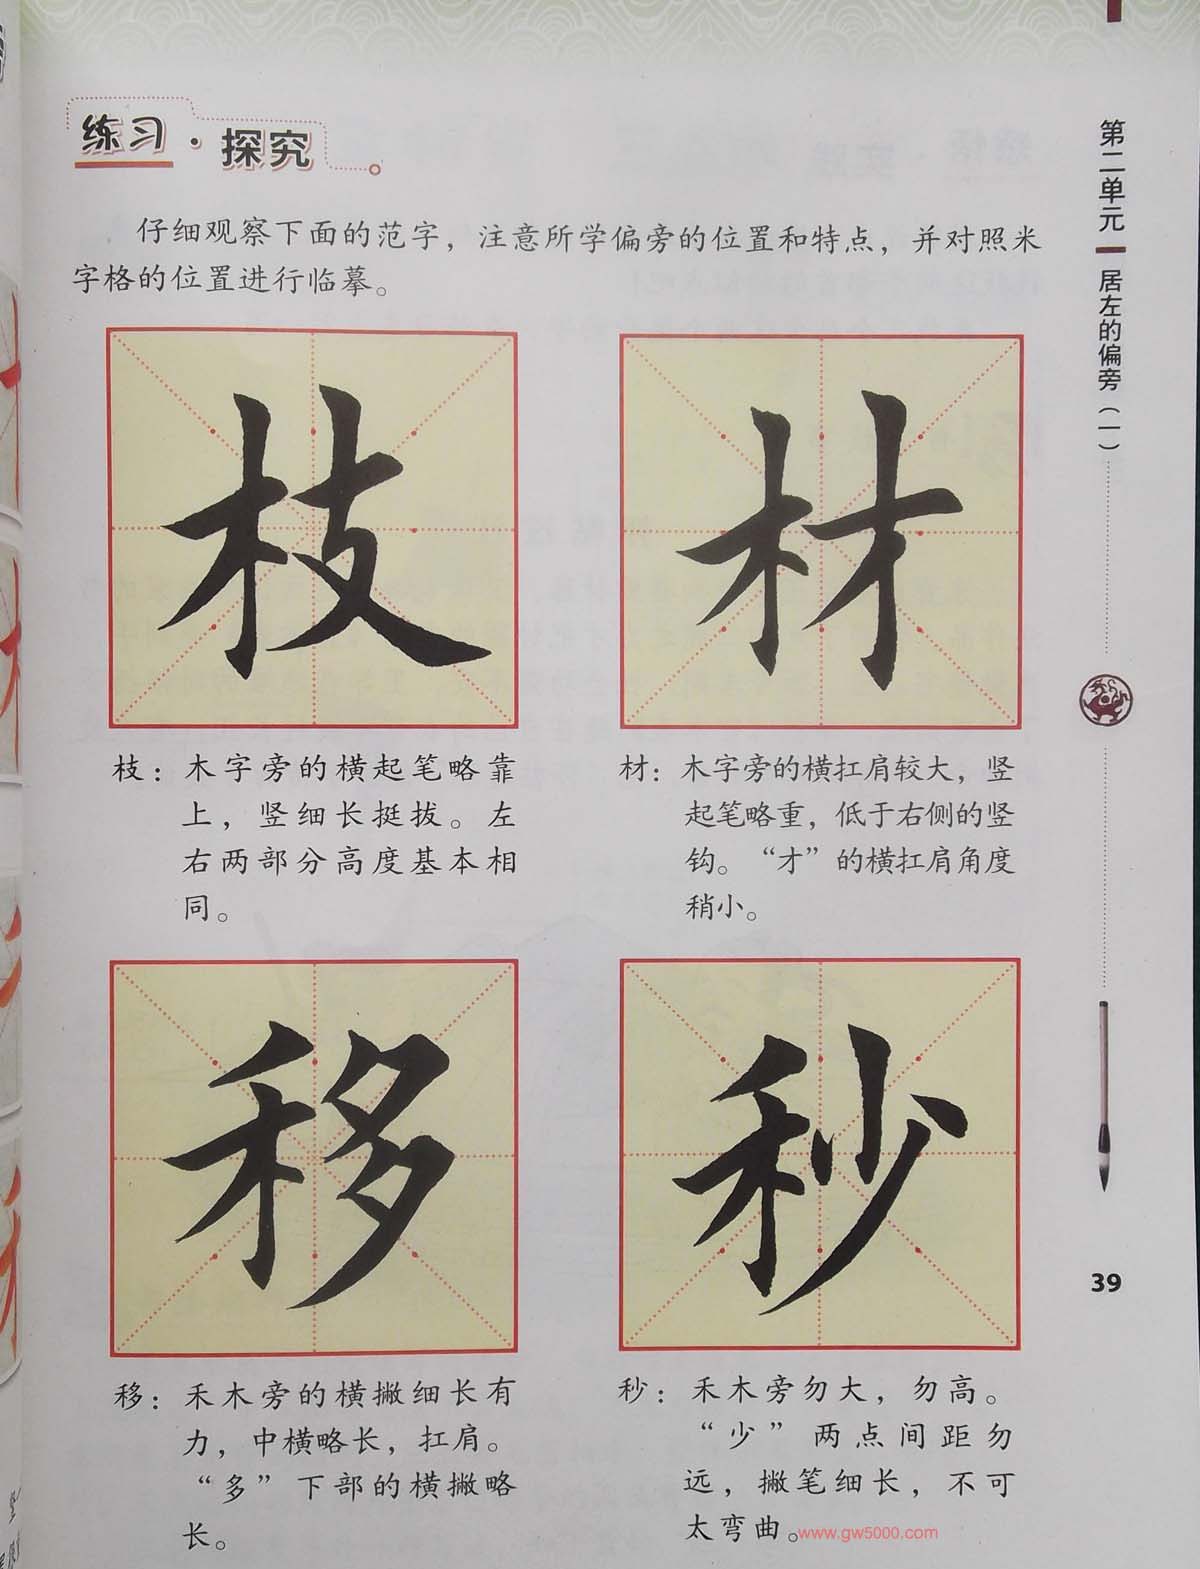 练习·探究
仔细观察下面的范字，注意所学偏旁的位置和特点，并对照米
字格的位置进行临摹。
枝
材
枝：木字旁的横起笔略靠
上，竖细长挺拔。左
右两部分高度基本相
同。
材：木字旁的横扛肩较大，竖
起笔略重，低于右侧的竖
钩。“才”的横扛肩角度
稍小。
移
秒
移：禾木旁的横撇细长有
力，中横略长，扛肩。
“多”下部的横撇略
长。
秒：禾木旁勿大，勿高。
“少”两点间距勿
远，撇笔细长，不可
太弯曲。
www.gw5000.com
第二单元
居左的偏旁（一）
39